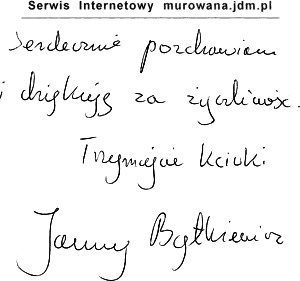 Serwis Internetowy murowana.jdm.pl
Serdecznie pozdrawiam
i dziękuję za życzliwość.
Trzymajcie kciuki